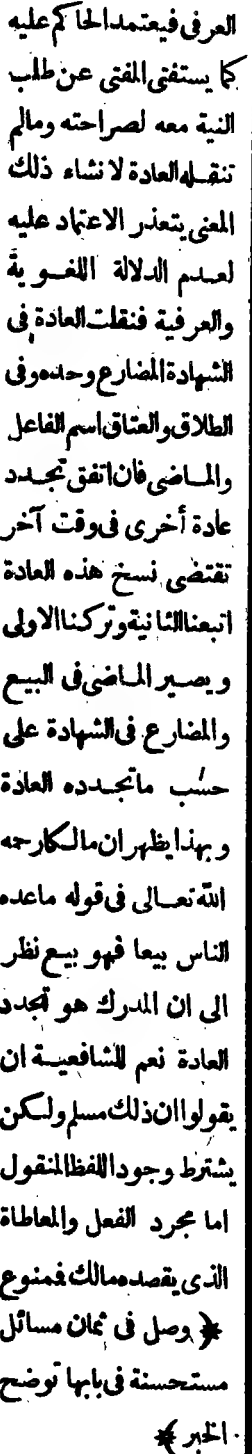 العرفى فيعتمد الحاكم عليه
كما يستفتى المفتى عن طلب
النية معه لصراحته ومالم
تنقله العادة لانشاء ذلك
المعنى يتعذر الاعتماد عليه
لعدم الدلالة اللغوية
والعرفية فنقلت العادة فى
الشهادة المضارع وحده وفى
الطلاق والعتاق اسم الفاعل
والماضى فان اتفق تجدد
عادة أخرى فى وقت آخر
تقتضى نسخ هذه العادة
اتبعنا الثانية وتركنا الاولى
ويصير الماضى فى البيع
والمضارع فى الشهادة على
حسب ماتجدده العادة
وبهذا يظهر ان مالكا رحمه
الله تعالى فى قوله ماعده
الناس بيعا فهو بيع نظر
الى ان المدرك هو تجدد
العادة نعم للشافعية ان
يقولوا ان ذلك مسلم ولكن
يشترط وجود اللفظ المنقول
اما مجرد الفعل والمعاطاة
الذى يقصده مالك فممنوع
﴿ وصل فى ثمان مسائل
مستحسنة فى بابها توضح
الخبر ﴾